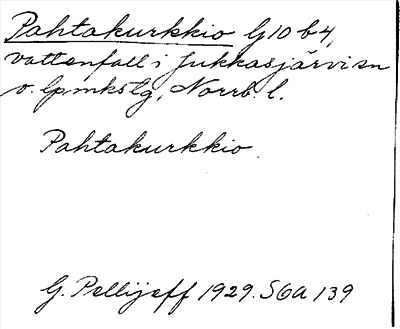 Pahtakurkkio G10b4,
vattenfall i Jukkasjärvi sn
o. lpmkslg, Norrb. l.
Pahtakurkkio.
G. Pellijeff 1929. S6a 139